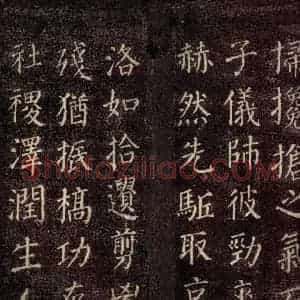 掃攙搶之氣
子儀帥彼勁
赫然先駈取京
洛如拾遺剪
殘猶振槁功存
社稷澤潤生
Shufaziliao.com